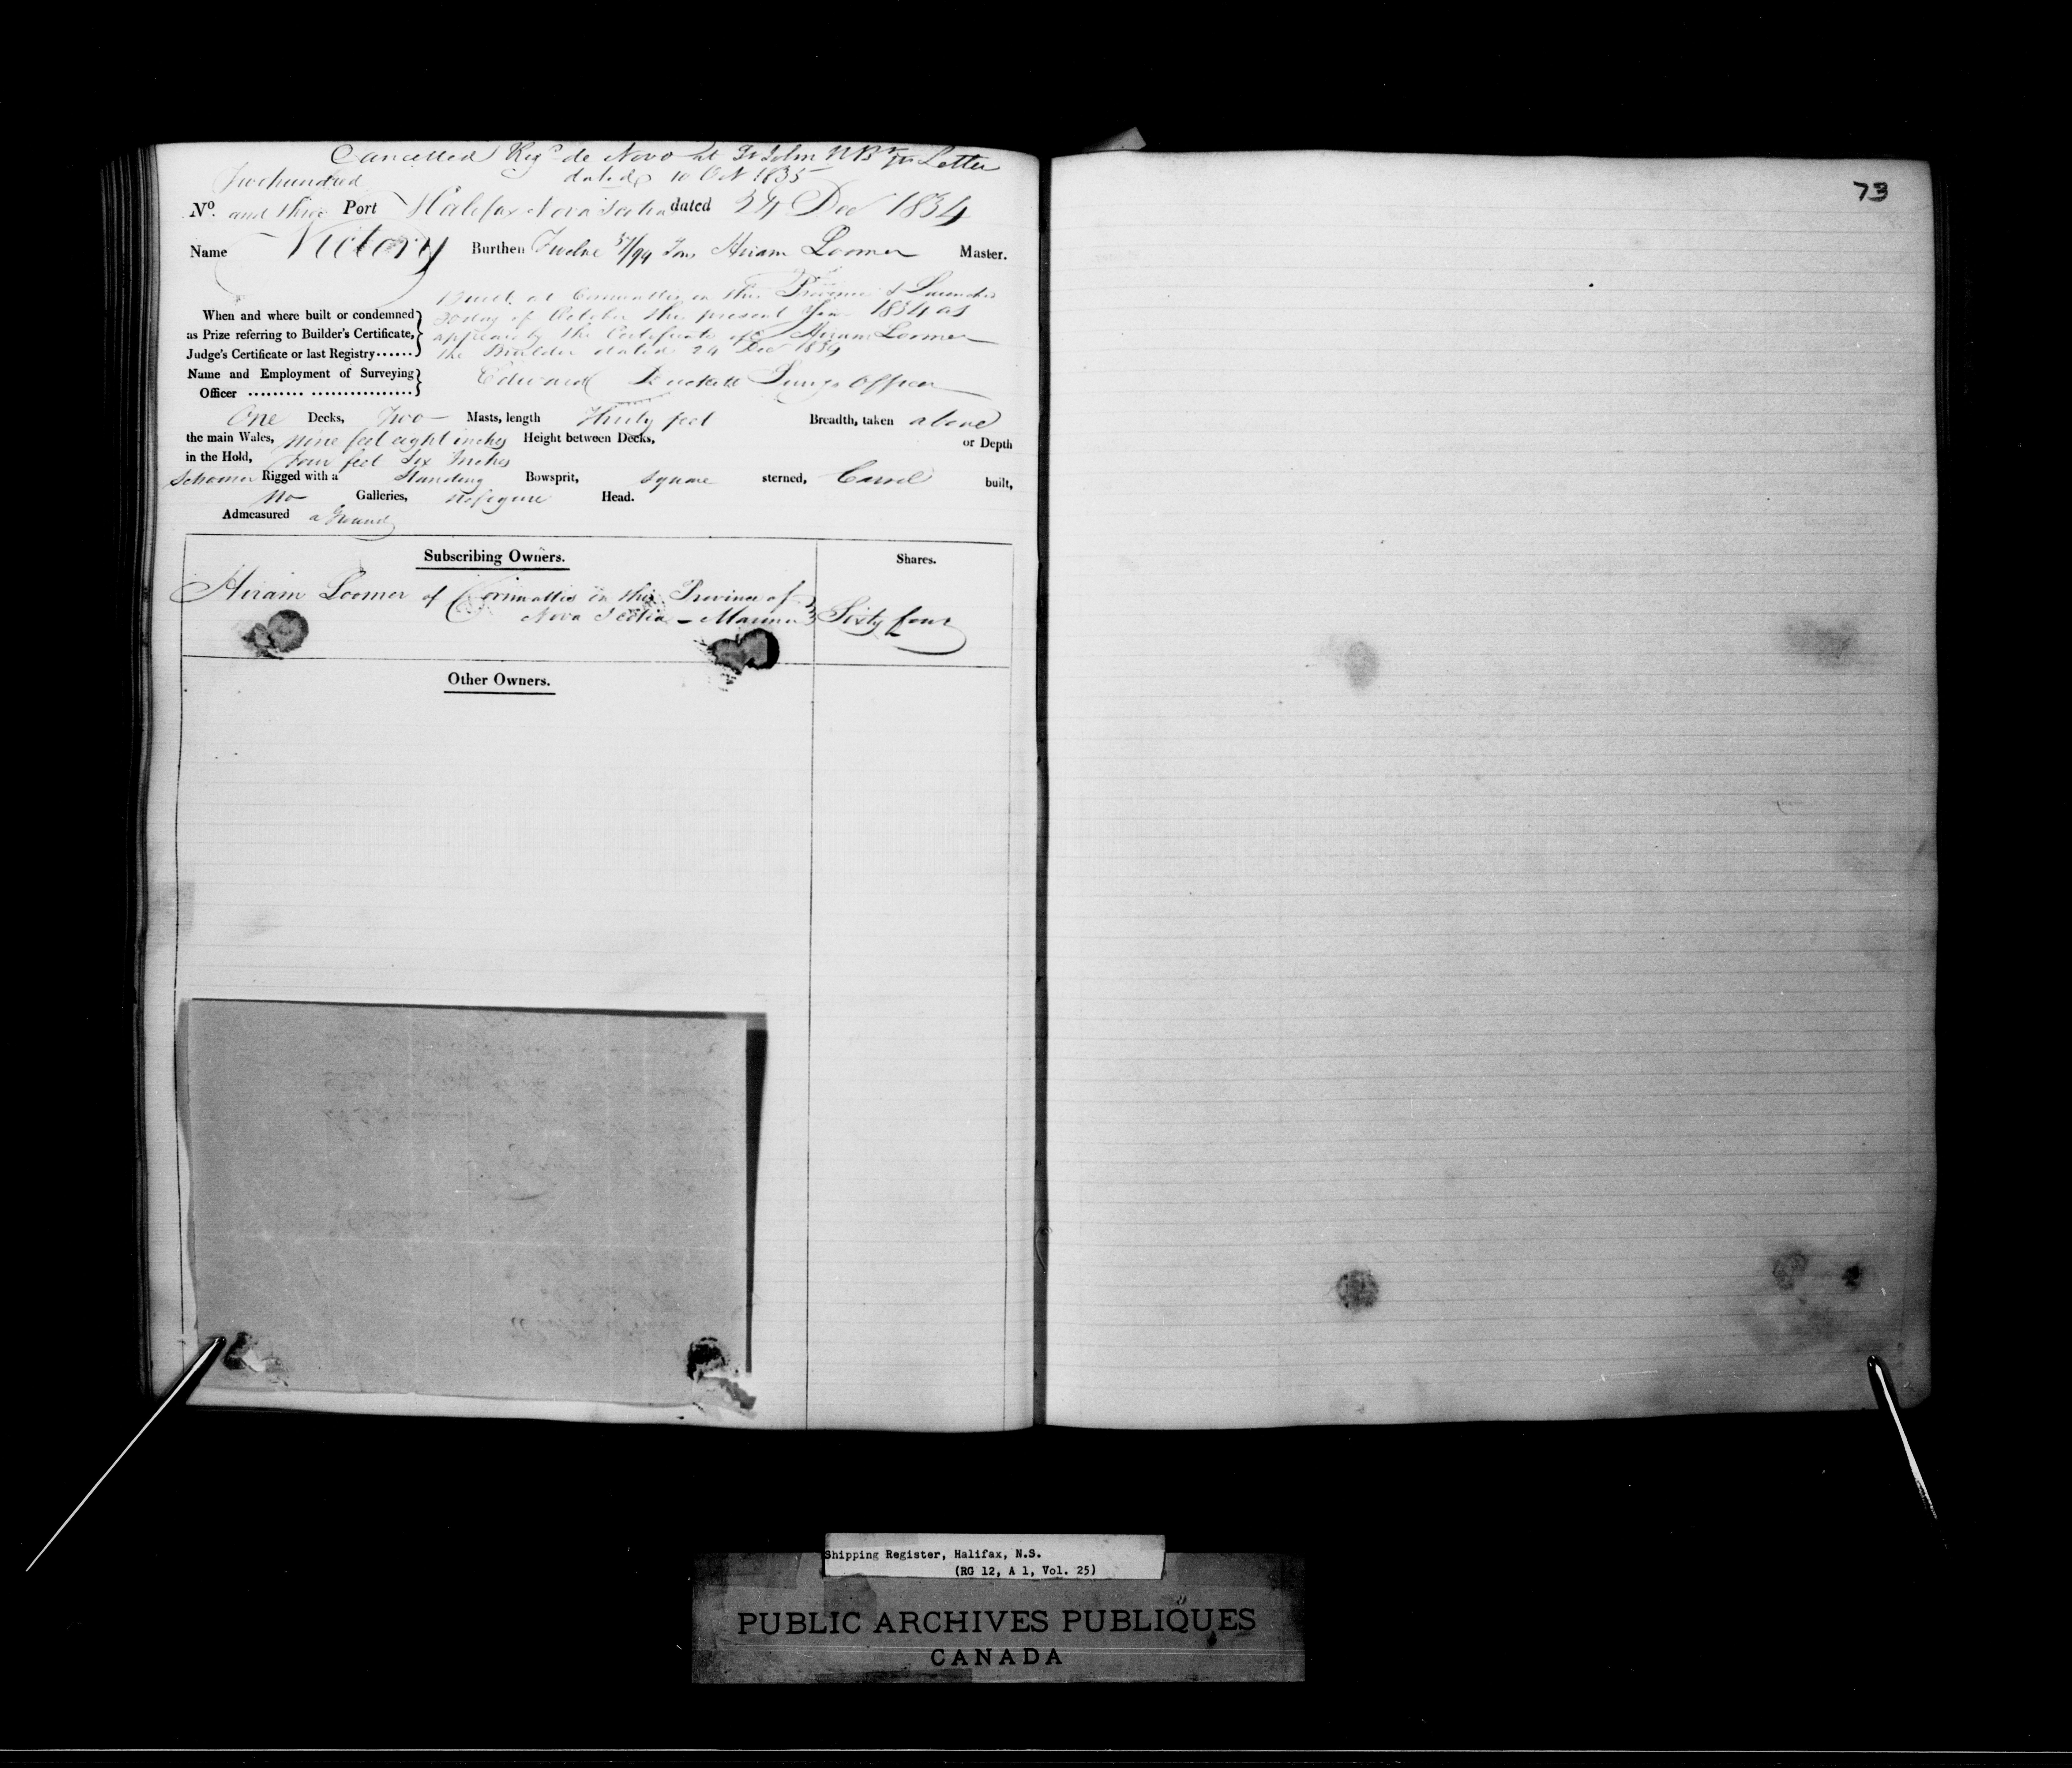 Cancelled Regd de Novo at St John NB pr Letter
dated 10 Oct 1835
Two hundred
No. and three Port Halifax Nova Scotia dated 24 Dec 1834
Name Victory Burthen Twelve 57/94 Tons Hiram Loomer Master.
Built at Cornwallis in this Province & Launched
When and where built or condemned day of October this present Year 1834 as
as Prize referring to Builder's Certificate, appears by the Certificate of Hiram Loomer
Judge's Certificate or last Registry...... the Builder dated 24 Dec 1834
Name and Employment of Surveying Edward Survg Officer
Officer ......... ................
One Decks, Two Masts, length Thirty feet Breadth, taken above
the main Wales, nine feet eight inches Height between Decks, or Depth
in the Hold, Four feet Six Inches
Schooner Rigged with a Standing Bowsprit, square sterned, Carvel built,
No Galleries, no figure Head.
Admeasured aground
Subscribing Owners. Shares.
Hiram Loomer of Cornwallis in this Province of
Nova Scotia - Mariner Sixty four
Other Owners.
73
Shipping Register, Halifax, N.S.
(RG 12, A 1, Vol. 25)
PUBLIC ARCHIVES PUBLIQUES
CANADA